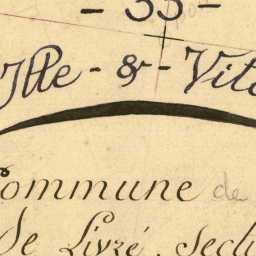 - 35 -
Ille - & - Vil
Commune de
de Livré. Secti